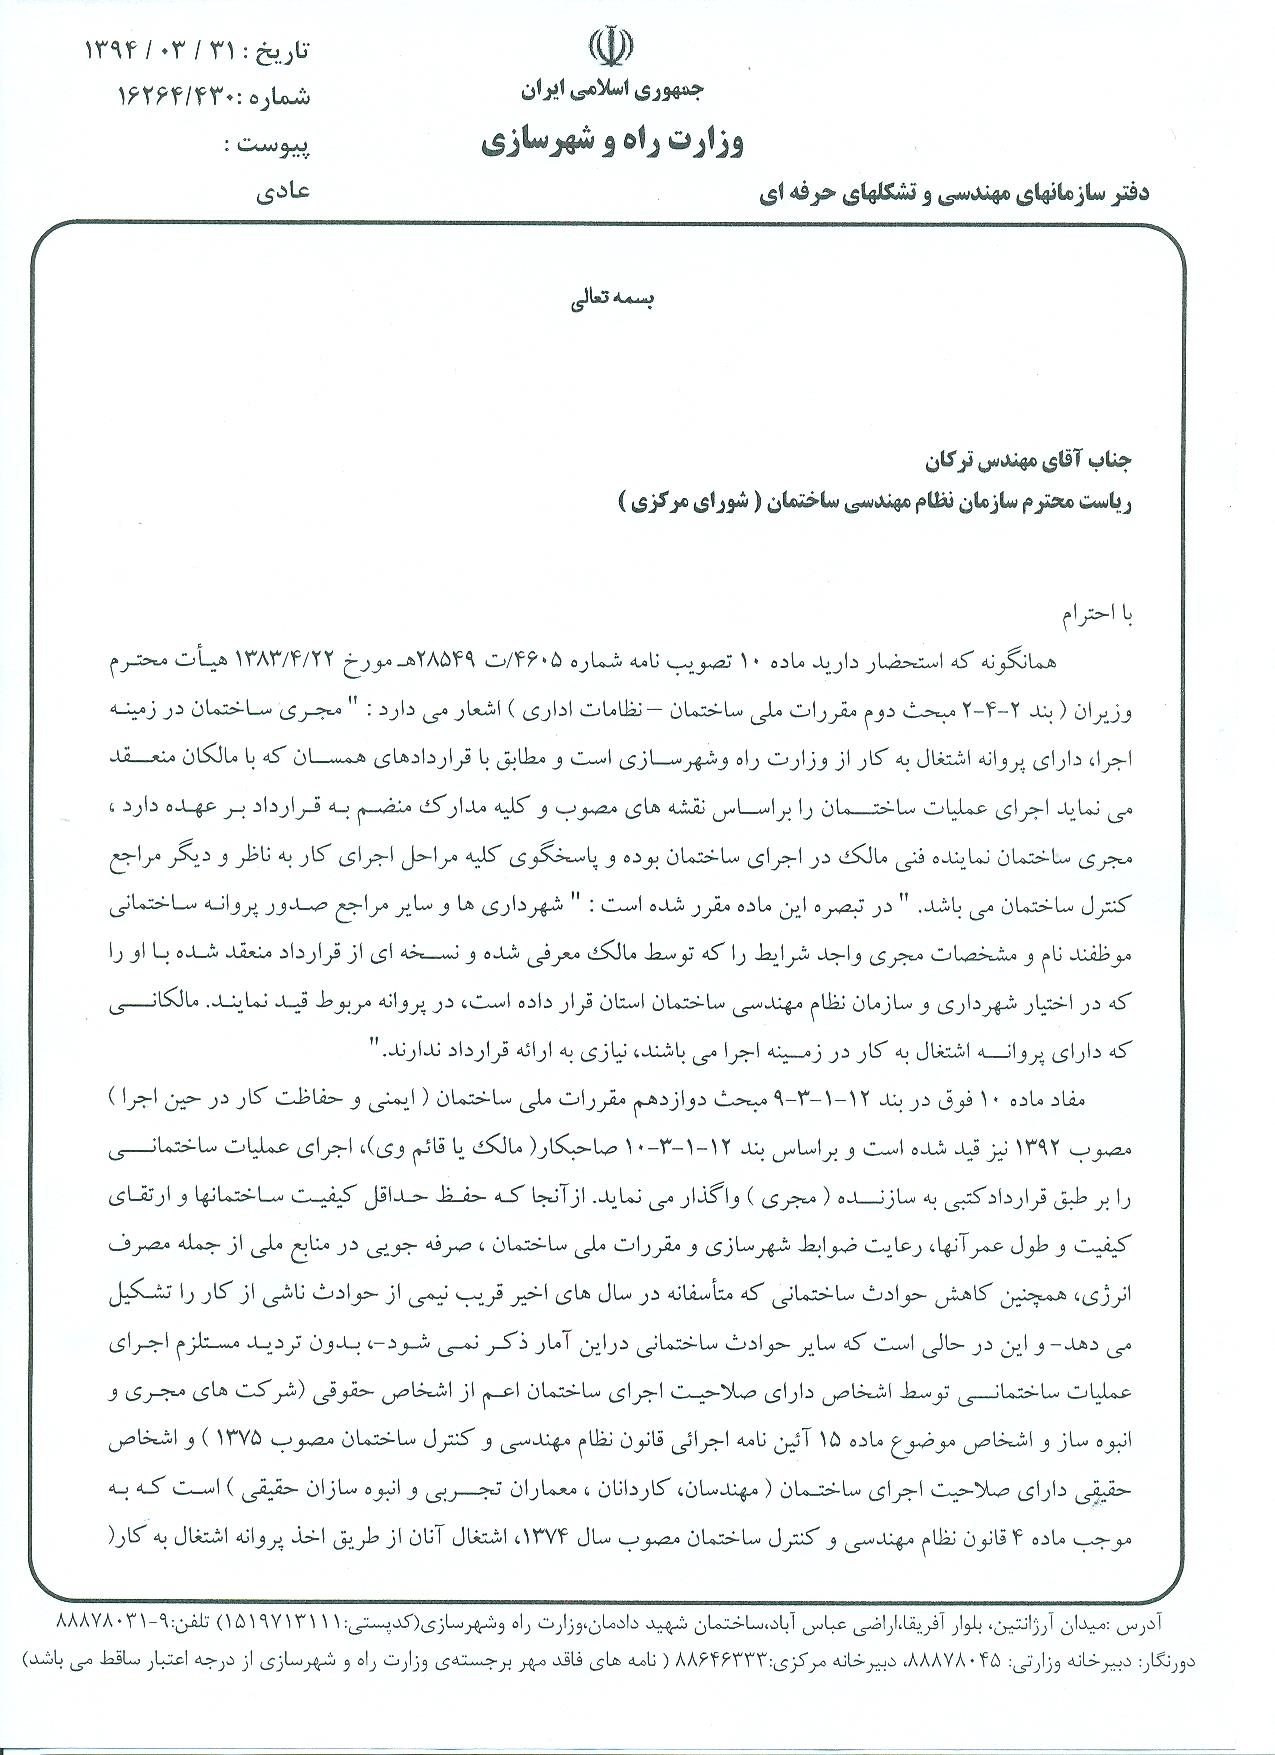 جمهوری اسلامی ایران
وزارت راه و شهرسازی
دفتر سازمانهای مهندسی و تشکلهای حرفه ای
تاریخ : ۳۱ / ۰۳ / ۱۳۹۴
شماره :۱۶۲۶۴/۴۳۰
پیوست :
عادی
بسمه تعالی
جناب آقای مهندس ترکان
ریاست محترم سازمان نظام مهندسی ساختمان ( شورای مرکزی )
با احترام
همانگونه که استحضار دارید ماده ۱۰ تصویب نامه شماره ۴۶۰۵/ت ۲۸۵۴۹هـ مورخ ۱۳۸۳/۴/۲۲ هیأت محترم
وزیران ( بند ۲-۴-۲ مبحث دوم مقررات ملی ساختمان –نظامات اداری ) اشعار می دارد : " مجری ساختمان در زمینه
اجرا، دارای پروانه اشتغال به کار از وزارت راه وشهرسازی است و مطابق با قراردادهای همسان که با مالکان منعقد
می نماید اجرای عملیات ساختمان را براساس نقشه های مصوب و کلیه مدارک منضم به قرارداد بر عهده دارد ،
مجری ساختمان نماینده فنی مالک در اجرای ساختمان بوده و پاسخگوی کلیه مراحل اجرای کار به ناظر و دیگر مراجع
کنترل ساختمان می باشد. " در تبصره این ماده مقرر شده است : " شهرداری ها و سایر مراجع صدور پروانه ساختمانی
موظفند نام و مشخصات مجری واجد شرایط را که توسط مالک معرفی شده و نسخه ای از قرارداد منعقد شده با او را
که در اختیار شهرداری و سازمان نظام مهندسی ساختمان استان قرار داده است، در پروانه مربوط قید نمایند. مالکانی
که دارای پروانه اشتغال به کار در زمینه اجرا می باشند، نیازی به ارائه قرارداد ندارند."
مفاد ماده ۱۰ فوق در بند ۱۲-۱-۳-۹ مبحث دوازدهم مقررات ملی ساختمان ( ایمنی و حفاظت کار در حین اجرا )
مصوب ۱۳۹۲ نیز قید شده است و براساس بند ۱۲-۱-۳-۱۰ صاحبکار( مالک یا قائم وی)، اجرای عملیات ساختمانی
را بر طبق قراردادکتبی به سازنده ( مجری ) واگذار می نماید. ازآنجا که حفظ حداقل کیفیت ساختمانها و ارتقای
کیفیت و طول عمرآنها، رعایت ضوابط شهرسازی و مقررات ملی ساختمان ، صرفه جویی در منابع ملی از جمله مصرف
انرژی، همچنین کاهش حوادث ساختمانی که متأسفانه در سال های اخیر قریب نیمی از حوادث ناشی از کار را تشکیل
می دهد- و این در حالی است که سایر حوادث ساختمانی دراین آمار ذکر نمی شود-، بدون تردید مستلزم اجرای
عملیات ساختمانی توسط اشخاص دارای صلاحیت اجرای ساختمان اعم از اشخاص حقوقی (شرکت های مجری و
انبوه ساز و اشخاص موضوع ماده ۱۵ آئین نامه اجرائی قانون نظام مهندسی و کنترل ساختمان مصوب ۱۳۷۵ ) و اشخاص
حقیقی دارای صلاحیت اجرای ساختمان ( مهندسان، کاردانان ، معماران تجربی و انبوه سازان حقیقی ) است که به
موجب ماده ۴ قانون نظام مهندسی و کنترل ساختمان مصوب سال ۱۳۷۴، اشتغال آنان از طریق اخذ پروانه اشتغال به کار(
آدرس :میدان آرژانتین، بلوار آفریقا،اراضی عباس آباد،ساختمان شهید دادمان،وزارت راه وشهرسازی(کدپستی:۱۵۱۹۷۱۳۱۱۱) تلفن:۹-۸۸۸۷۸۰۳۱
دورنگار: دبیرخانه وزارتی: ۸۸۸۷۸۰۴۵، دبیرخانه مرکزی:۸۸۶۴۶۳۳۳ ( نامه های فاقد مهر برجسته‌ی وزارت راه و شهرسازی از درجه اعتبار ساقط می باشد)